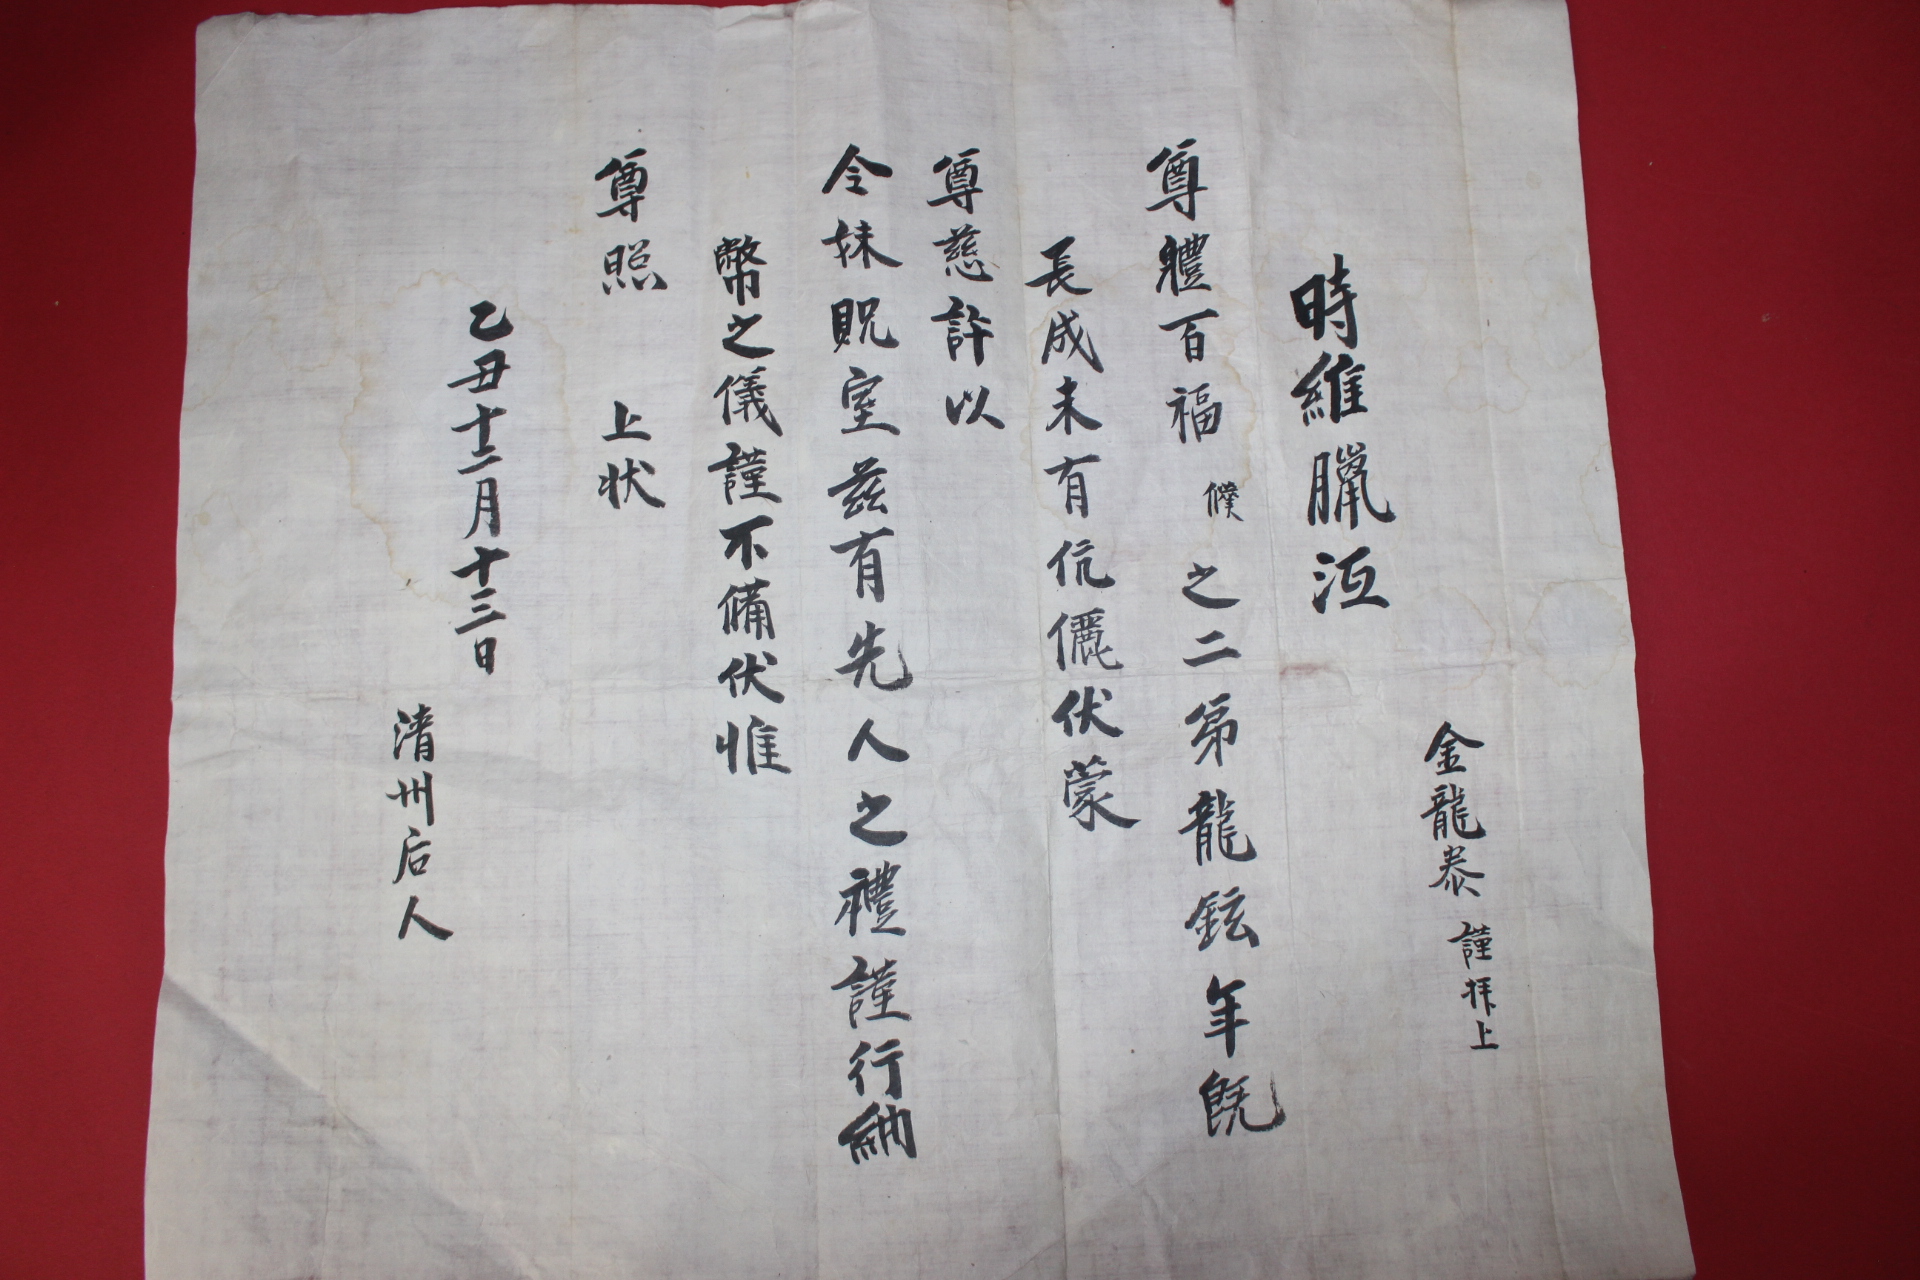 金龍泰 謹拜上
時維臘沍
尊軆百福 僕之二弟龍鉉年旣
長成未有伉儷伏蒙
尊慈許以
令妹貺室玆有先人之禮謹行納
幣之儀謹不備伏惟
尊照 上狀
乙丑十二月十三日
淸州后人